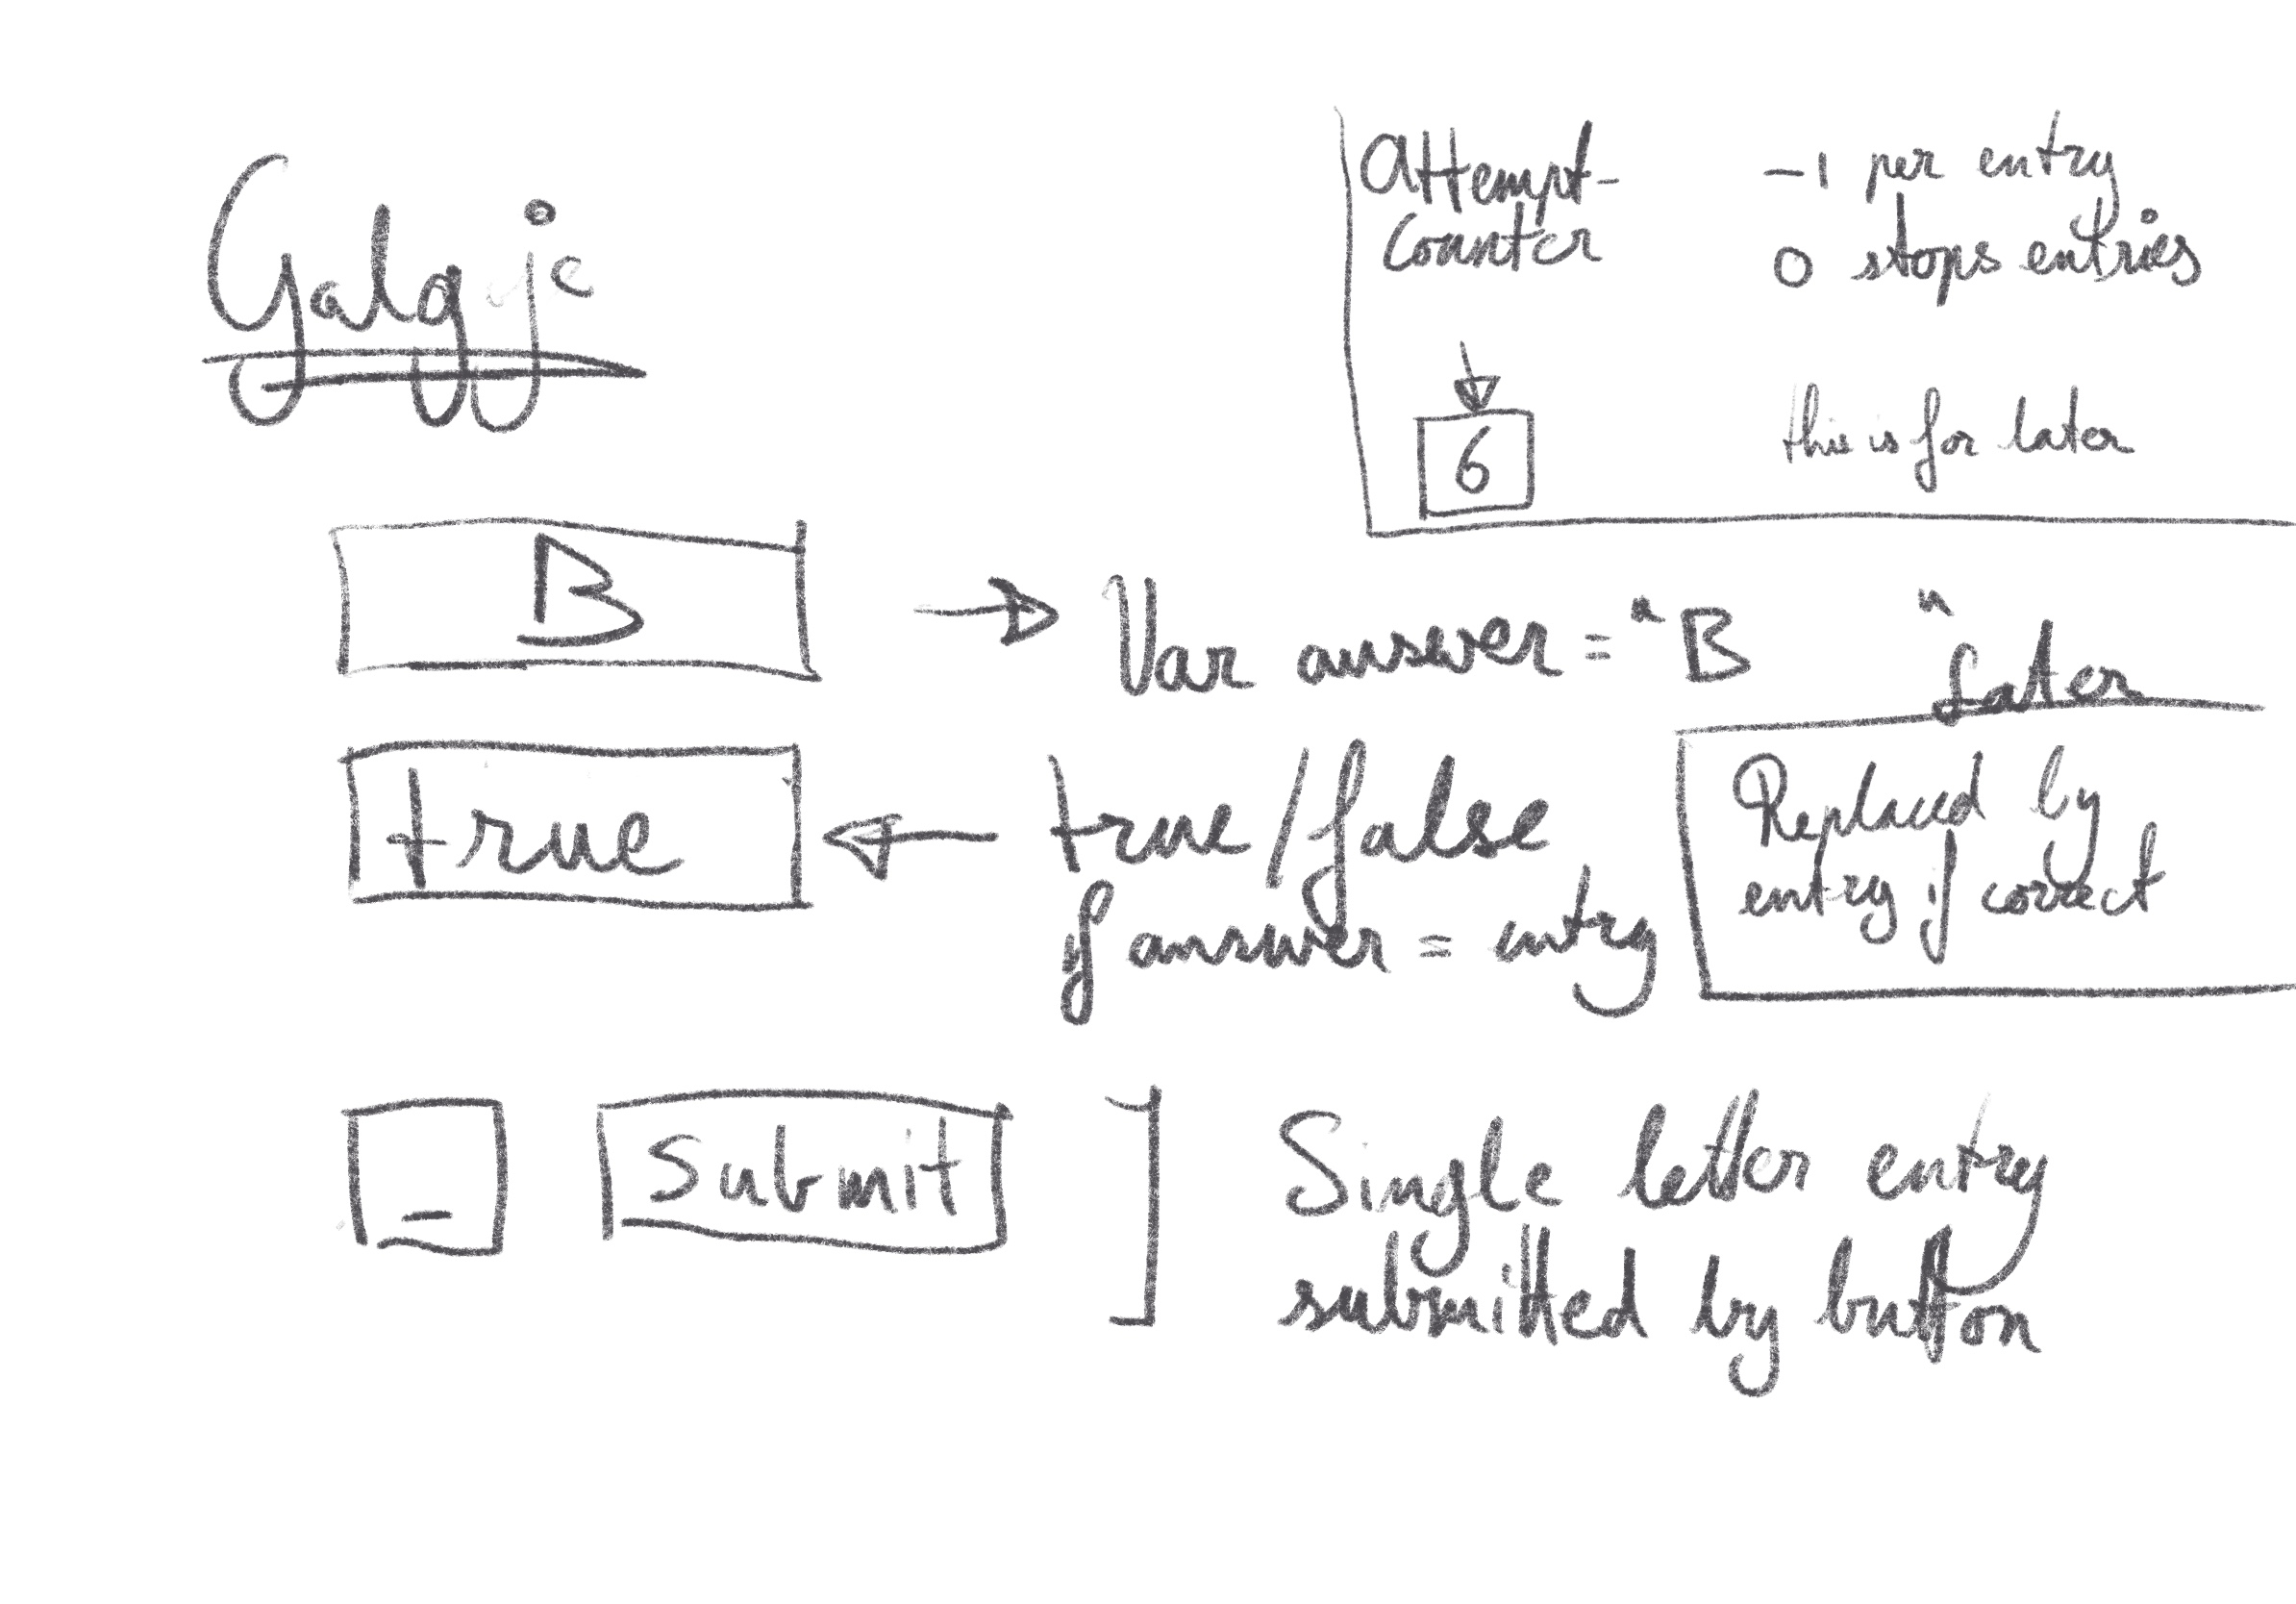 Galgje
Attempt-
Counter
-1 per entry
0 stops entries
6
this is for later
B
Var answer = "B "
Later
true
true/false
if answer = entry
Replaced by
entry if correct
_
Submit
Single letter entry
submitted by button